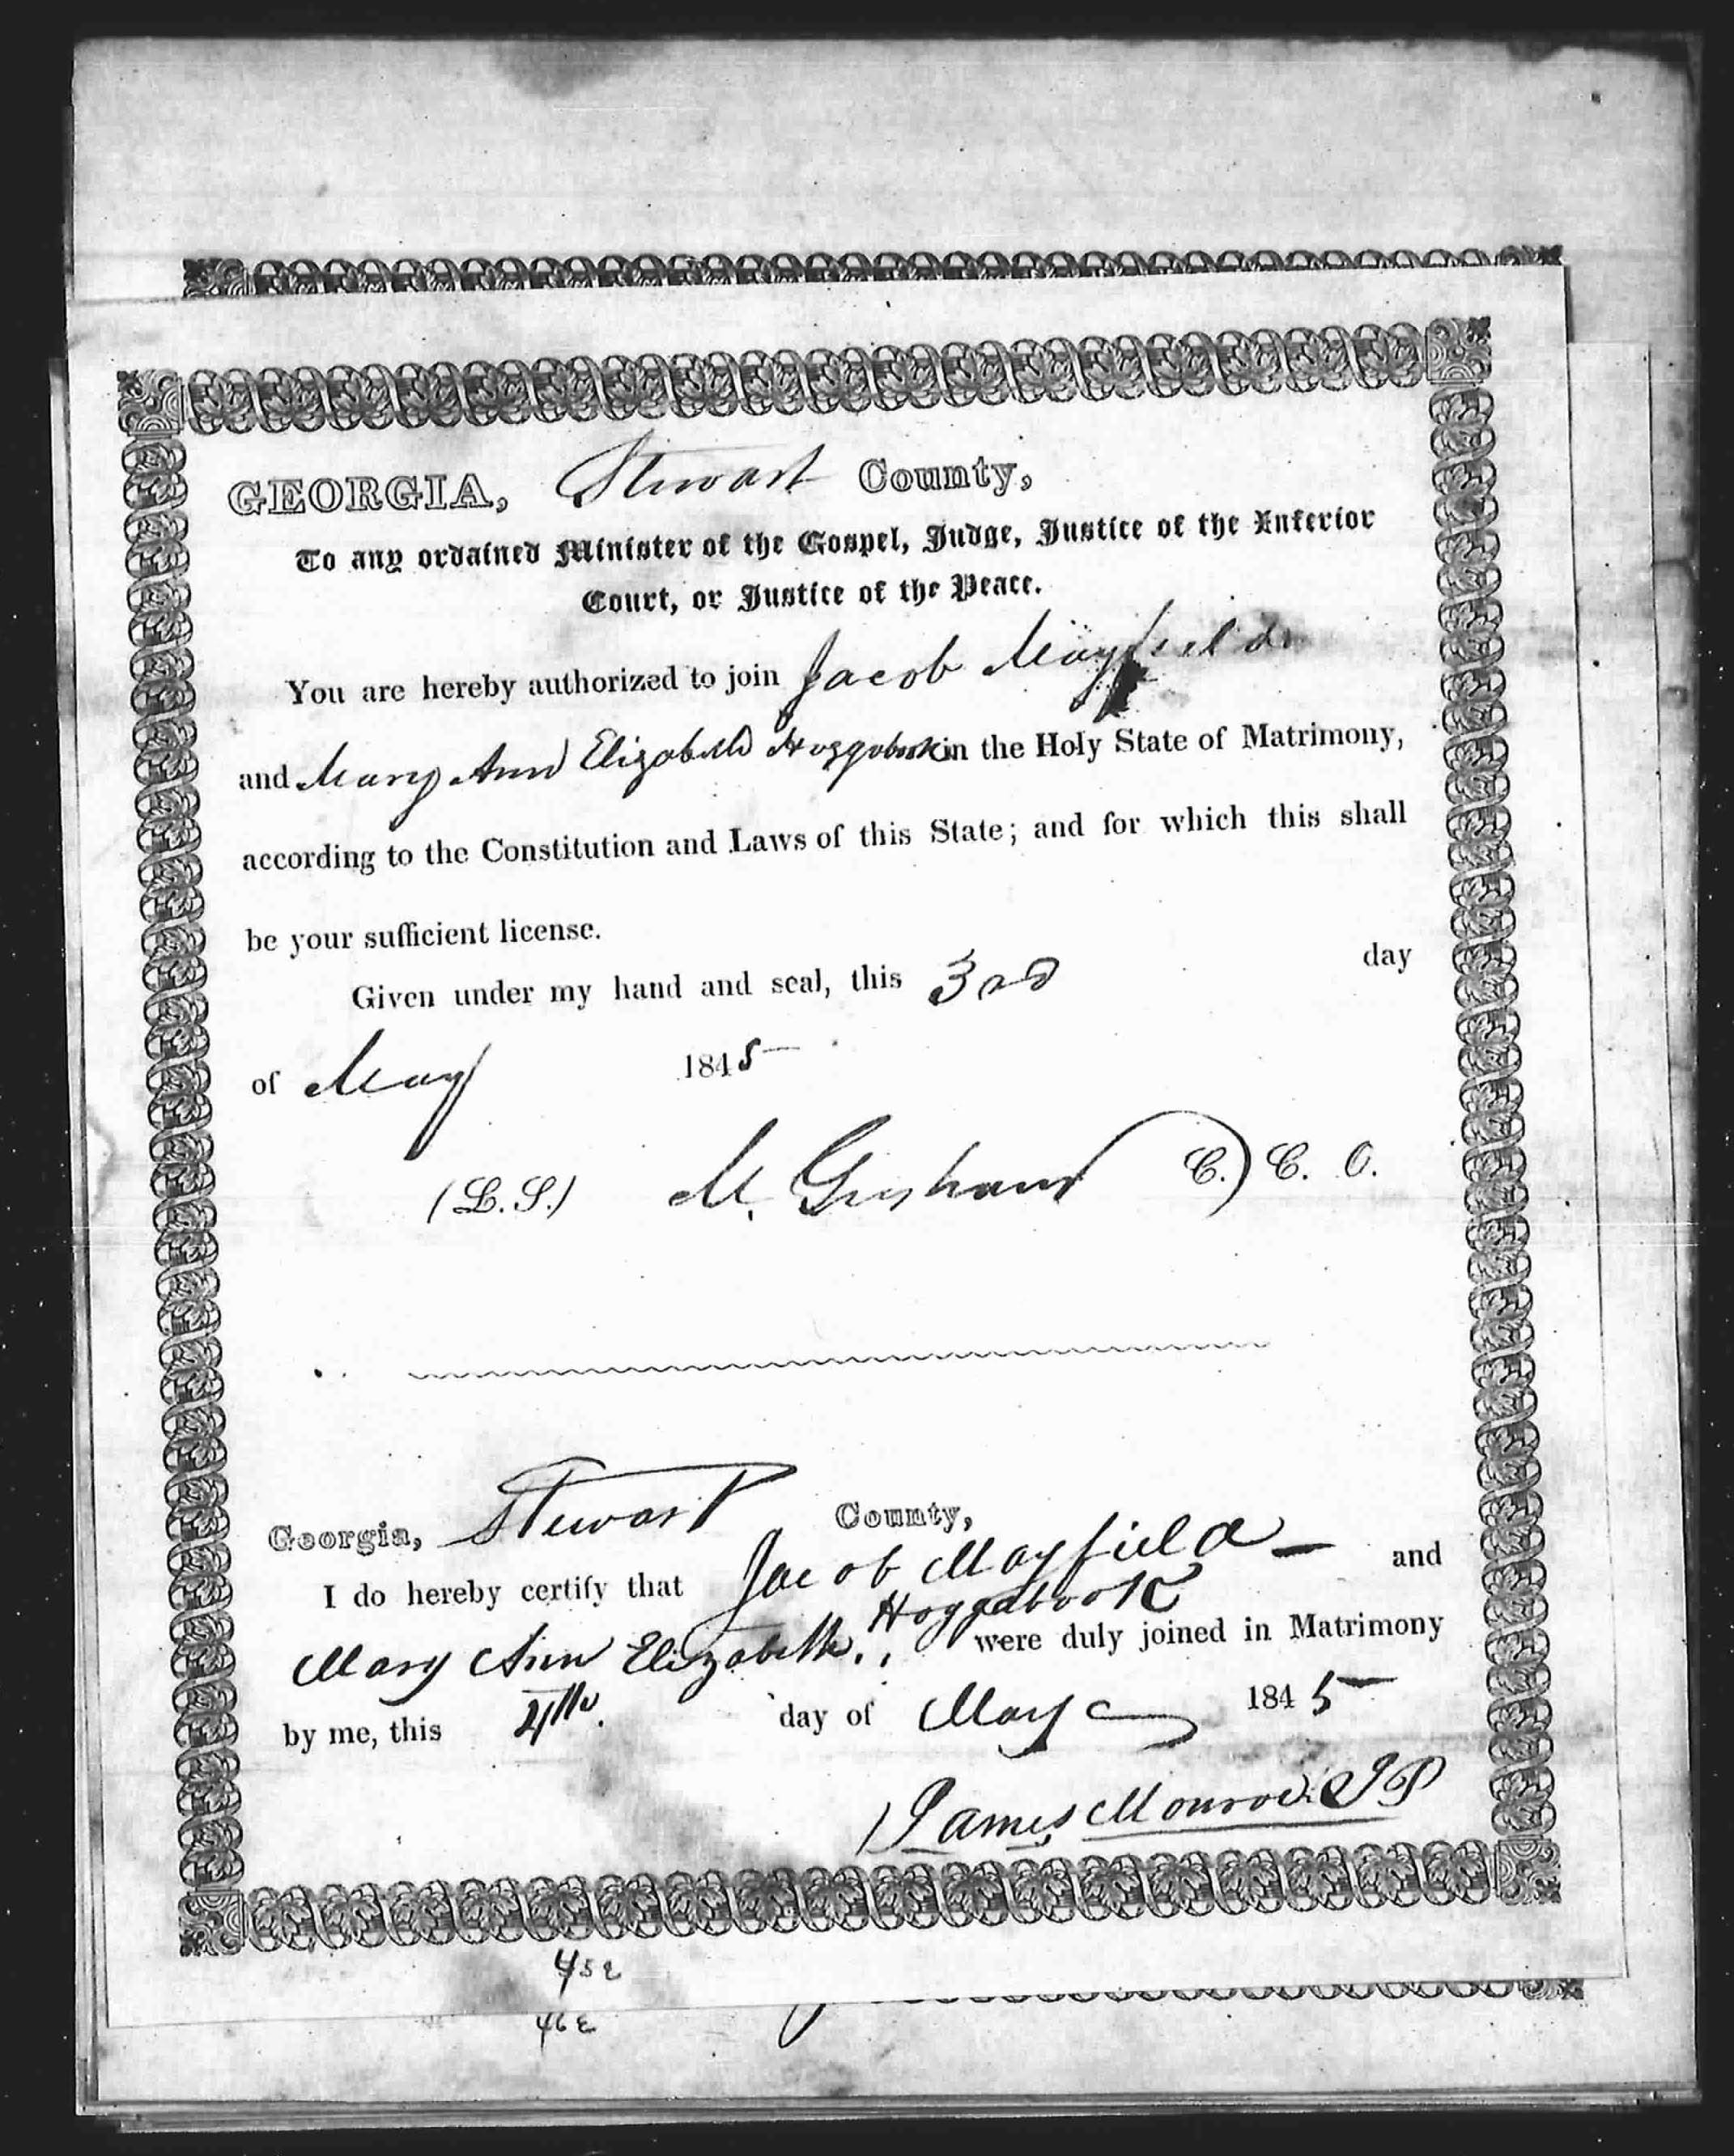 GEORGIA, Stewart County,
To any ordained Minister of the Gospel, Judge, Justice of the Inferior
Court, or Justice of the Peace.
You are hereby authorized to join Jacob Mayfield
and Mary Ann Elizabeth Hoggobook in the Holy State of Matrimony,
according to the Constitution and Laws of this State; and for which this shall
be your sufficient license.
Given under my hand and seal, this 3rd day
of May 1845
(L.S.) M. Gresham C. C. O.
Georgia, Stewart County,
I do hereby certify that Jacob Mayfield and
Hoggabook
Mary Ann Elizabeth were duly joined in Matrimony
by me, this 4th day of May 1845
James Monroe JP
452
462